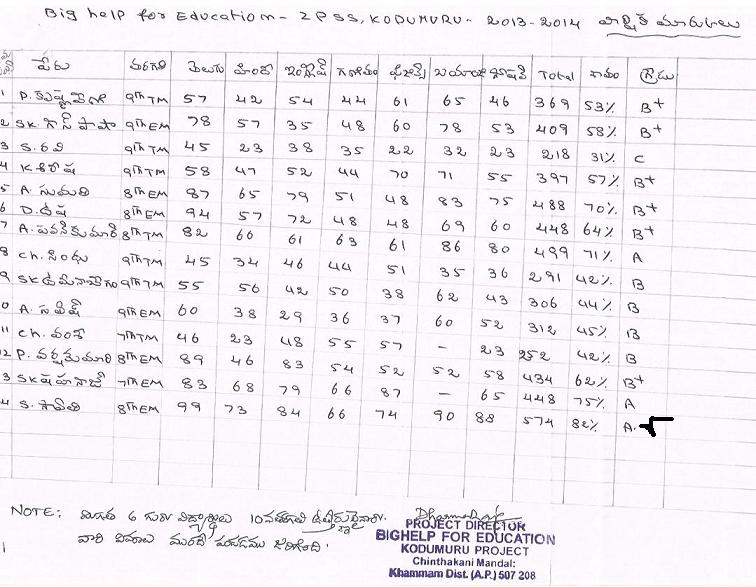 Big help for Education - ZPSS, KODUMURU - 2013-2014 వార్షిక మార్కులు
పేరు తరగతి తెలుగు హిందీ ఇంగ్లీష్ గణితం ఫిజిక్స్ బయాలజీ సోషల్ Total శాతం గ్రేడు
1 P. కృష్ణవేణి 9th TM 57 42 54 44 61 65 46 369 53% B+
2 SK. గౌసీ పాషా 9th EM 78 57 35 48 60 78 53 409 58% B+
3 S. రవి 9th TM 45 23 38 35 22 32 23 218 31% C
4 K. శిరీష 9th TM 58 47 52 44 70 71 55 397 57% B+
5 A. సుమతి 8th EM 87 65 79 51 48 83 75 488 70% B+
6 D. ఉష 8th EM 94 57 72 48 48 69 60 448 64% B+
7 A. పవన్ కుమార్ 8th TM 82 66 61 63 61 86 80 499 71% A
8 Ch. సింధు 9th TM 45 34 46 44 51 35 36 291 42% B
9 SK 9th TM 55 56 42 50 38 62 43 306 44% B
0 A. 9th EM 60 38 29 36 37 60 52 312 45% B
11 Ch. వంశీ 7th TM 46 23 48 55 57 - 23 252 42% B
2 P. 8th EM 89 46 83 54 52 52 58 434 62% B+
3 SK షహనాజ్ 7th EM 83 68 79 66 87 - 65 448 75% A
4 S. 8th EM 99 73 84 66 74 90 88 574 82% A.
NOTE: మిగతా 6 గురు విద్యార్థులు 10వ తరగతి ఉత్తీర్ణులైనారు.
వారి వివరాలు ముందే పంపడము జరిగింది.
PROJECT DIRECTOR
BIGHELP FOR EDUCATION
KODUMURU PROJECT
Chinthakani Mandal:
Khammam Dist. (A.P.) 507 208